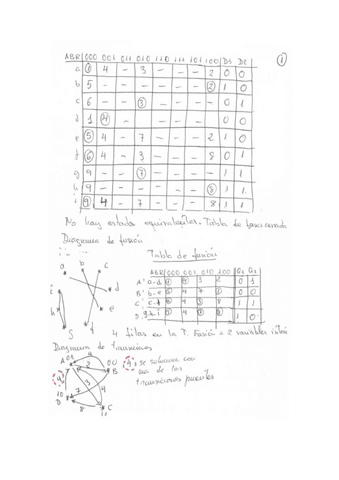 1
ABR 000 001 011 010 110 111 101 100 D1 D2
a 1 4 - 3 - - - 2 0 0
b 5 - - - - - - 2 1 0
c 6 - - 3 - - - - 0 1
d 1 4 - - - - - 0 0
e 5 4 - 7 - - - 2 1 0
f 6 4 - 3 - - - 8 0 1
g 9 - - 7 - - - - 1 1
h 9 - - - - - - 8 1 1
i 9 4 - 7 - - - 8 1 1
No hay estados equivalentes. Tabla de fases cerrada
Diagrama de fusión
Tabla de fusión
a b c
d
e
f
g
h
i
ABR 000 001 010 100
A: a-d 1 4 3 2 0 1
B: b-e 5 4 7 2 0 0
C: c-f 6 4 3 8 1 1
D: g-h-i 9 4 7 8 1 0
4 filas en la T. Fusión = 2 variables
Diagrama de transiciones
A 01
00 B
10 D
C 11
9 se soluciona con
una de las
transiciones puentes